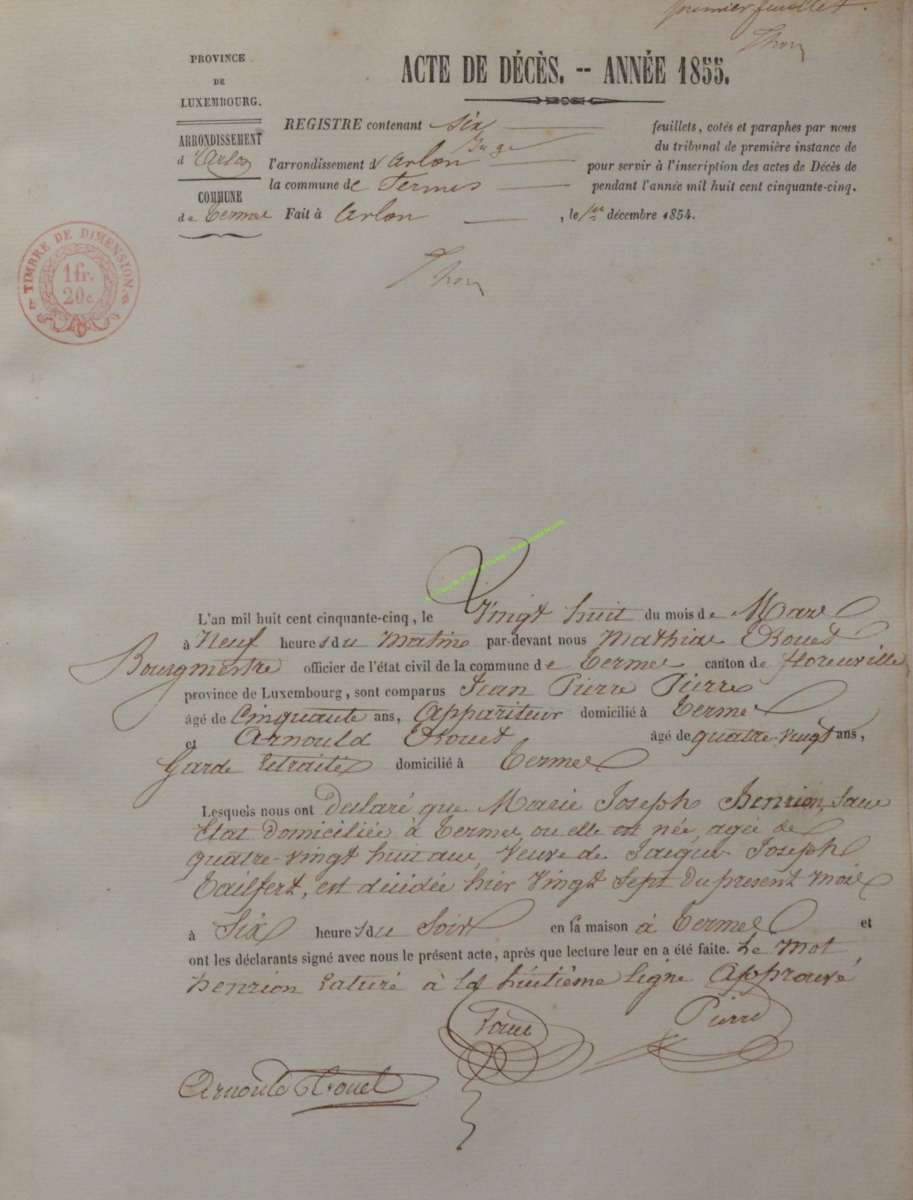 premier feuillet.
Thon
PROVINCE
DE
LUXEMBOURG.
ARRONDISSEMENT
d'Arlon
COMMUNE
de Termes
ACTE DE DÉCÈS. -- ANNÉE 1855.
REGISTRE contenant six feuillets, cotés et paraphes par nous
Juge du tribunal de première instance de
l'arrondissement d'Arlon pour servir à l'inscription des actes de Décès de
la commune de Termes pendant l'année mil huit cent cinquante-cinq.
Fait à Arlon, le 1er décembre 1854.
Thon
TIMBRE DE DIMENSION
1 fr.
20 c.
L'an mil huit cent cinquante-cinq, le Vingt huit du mois de Mars
à Neuf heures du Matin par-devant nous Mathias
Bourgmestre officier de l'état civil de la commune de Termes canton de florenville
province de Luxembourg, sont comparus Jean Pierre Pierre
âgé de Cinquante ans, Appariteur domicilié à Termes
et Arnould âgé de quatre-vingt ans,
Garde retraité domicilié à Termes
Lesquels nous ont déclaré que Marie Joseph Henrion, sans
Etat domiciliée à Termes, ou elle est née, agée de
quatre-vingt huit ans, Veuve de Jacques Joseph
Tailfert, est décédée hier Vingt Sept du present mois
à Six heures du Soir en sa maison à Termes et
ont les déclarants signé avec nous le présent acte, après que lecture leur en a été faite. Le mot
henrion raturé à la huitième ligne Approuvé
Pierre
Arnould